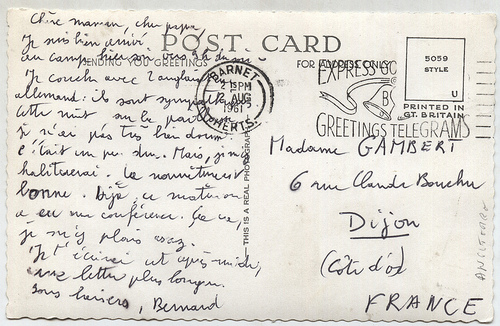 POST CARD
SENDING YOU GREETINGS
FOR ADDRESS ONLY
Chère maman, cher papa
Je suis bien arrivé
au camp hier au
Je couche avec 2 anglais
allemand: ils sont sympa
cette nuit sur le
je n'ai pas très bien dormi
c'était un peu dur. Mais, je m'y
habituerai. La nourriture est
bonne. Déjà, ce matin on
a eu une conférence. Ça va,
je m'y plais assez.
Je t'écrirai cet après-midi,
une lettre plus longue.
Bons baisers, Bernard
THIS IS A REAL PHOTOGRAPH
BARNET
2 15 PM
2 AUG
1961
HERTS.
EXPRESS GO
BY
GREETINGS TELEGRAMS
5059
STYLE
U
PRINTED IN
GT. BRITAIN
Madame GAMBERT
6 rue Claude Bouchu
Dijon
(Côte d'or)
FRANCE
ANGLETERRE